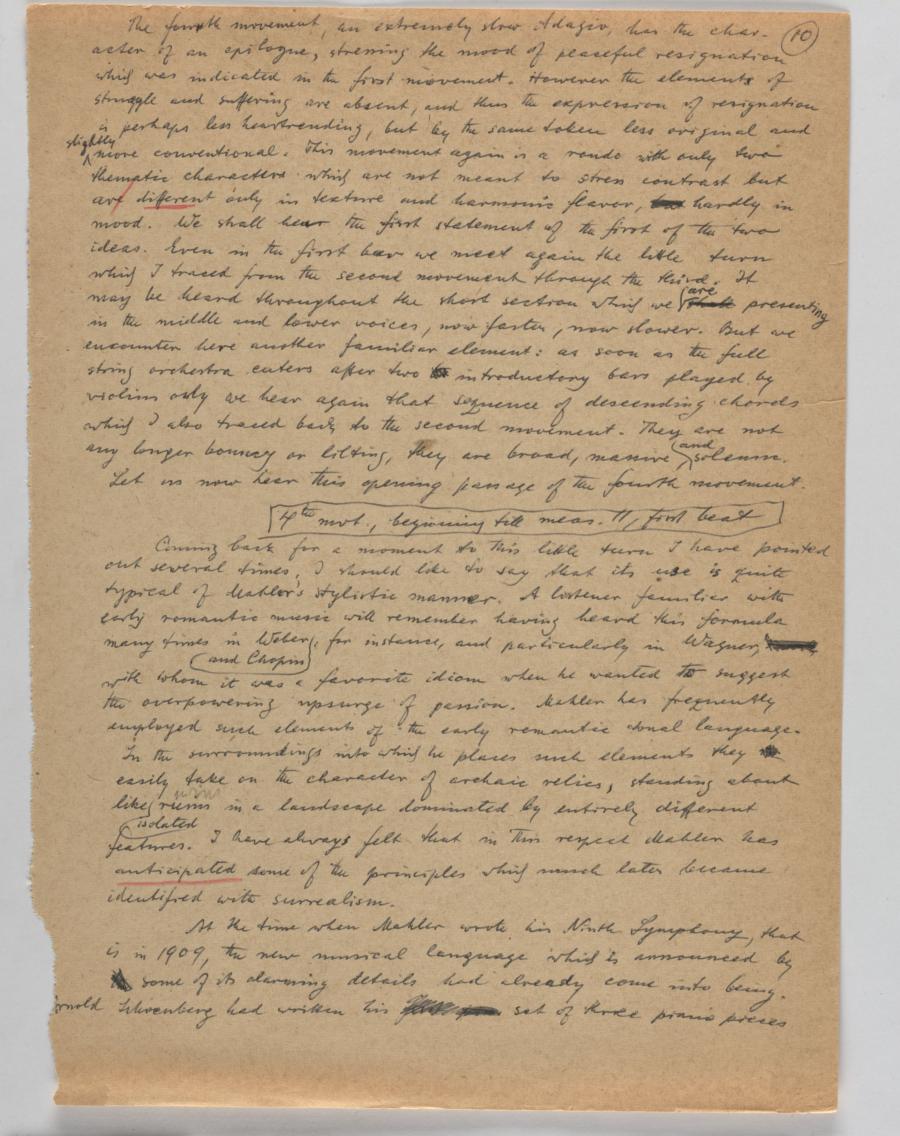 10
The fourth movement, an extremely slow Adagio, has the char-
acter of an epilogue, stressing the mood of peaceful resignation
which was indicated in the first movement. However the elements of
struggle and suffering are absent, and thus the expression of resignation
is perhaps less heartrending, but by the same token less original and
slightly more conventional. This movement again is a rondo with only two
thematic characters which are not meant to stress contrast but
are different only in texture and harmonic flavor, hardly in
mood. We shall hear the first statement of the first of the two
ideas. Even in the first bar we meet again the little turn
which I traced from the second movement through the third. It
may be heard throughout the short section which we are presenting
in the middle and lower voices, now faster, now slower. But we
encounter here another familiar element: as soon as the full
string orchestra enters after two introductory bars played by
violins only we hear again that sequence of descending chords
which I also traced back to the second movement. They are not
any longer bouncy or lilting, they are broad, massive and solemn.
Let us now hear this opening passage of the fourth movement.
4th mvt., beginning till meas. 11, first beat
Coming back for a moment to this little turn I have pointed
out several times, I should like to say that its use is quite
typical of Mahler's stylistic manner. A listener familiar with
early romantic music will remember having heard this formula
many times in Weber and Chopin, for instance, and particularly in Wagner,
with whom it was a favorite idiom when he wanted to suggest
the overpowering upsurge of passion. Mahler has frequently
employed such elements of the early romantic tonal language.
In the surroundings into which he places such elements they
easily take on the character of archaic relics, standing about
like isolated ruins in a landscape dominated by entirely different
features. I have always felt that in this respect Mahler has
anticipated some of the principles which much later became
identified with surrealism.
At the time when Mahler wrote his Ninth Symphony, that
is in 1909, the new musical language which is announced by
some of its alarming details had already come into being.
Arnold Schoenberg had written his set of three piano pieces